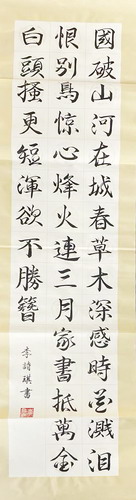 國破山河在城春草木深感時花濺泪
恨別鳥惊心烽火連三月家書抵萬金
白頭搔更短渾欲不勝簪
李詩琪書